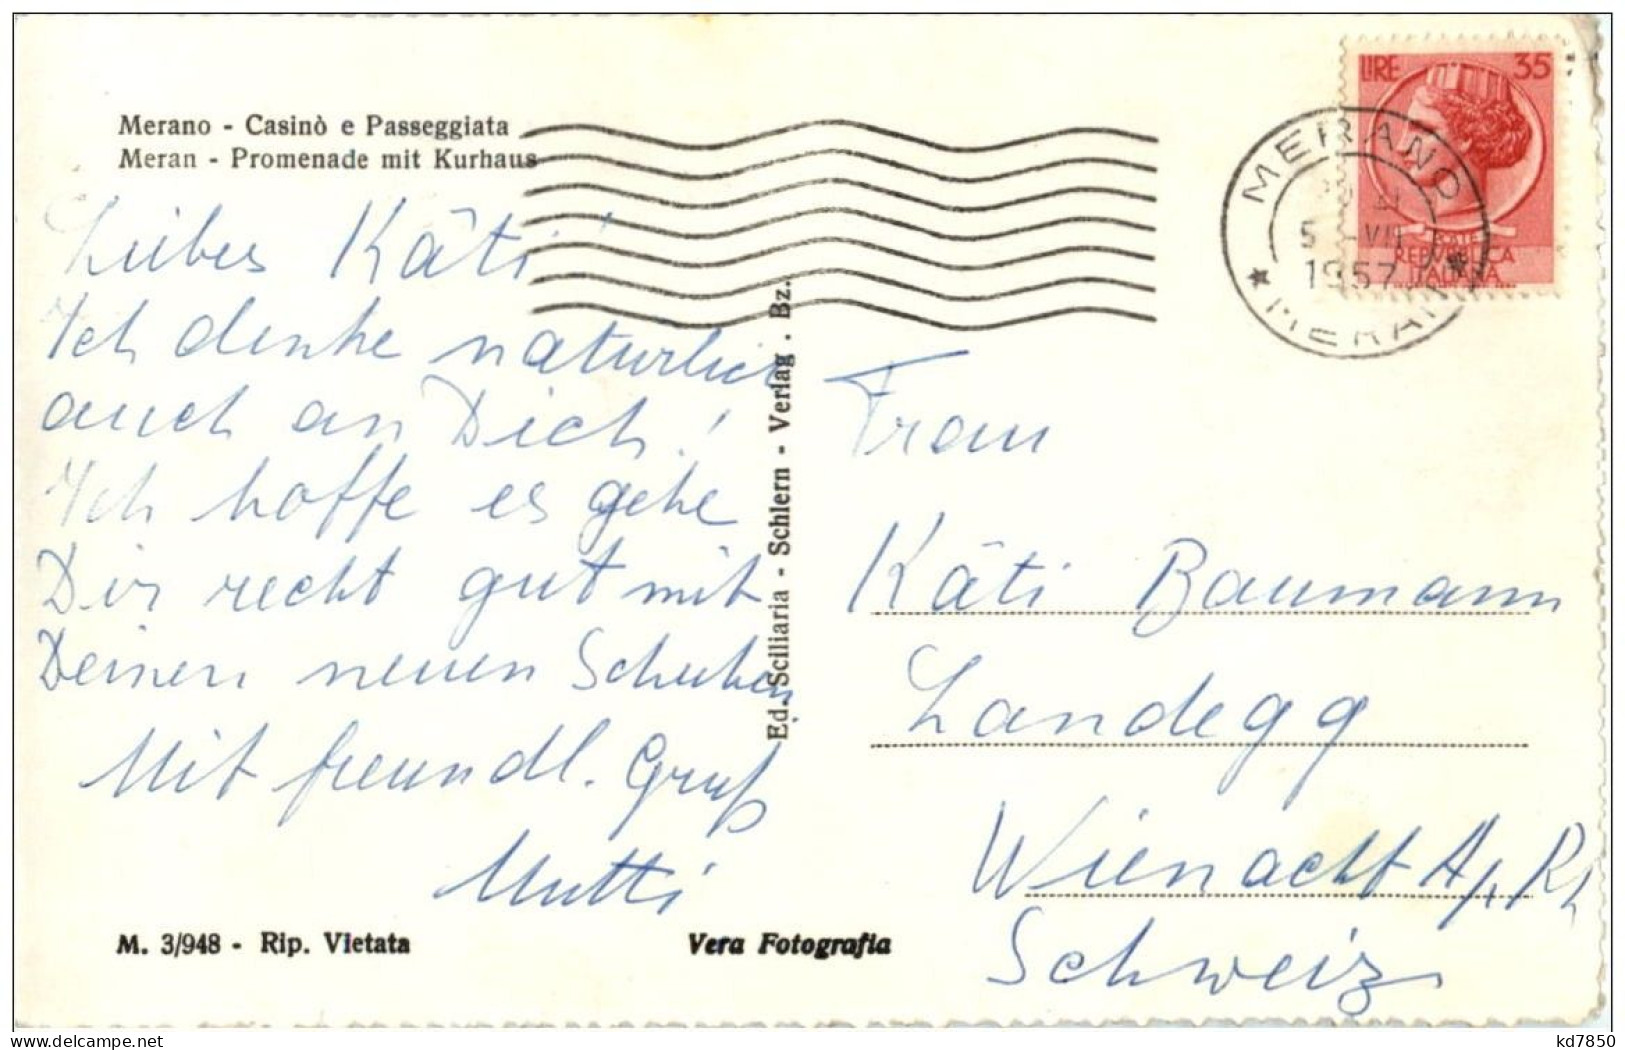 Merano - Casinò e Passeggiata
Meran - Promenade mit Kurhaus
Liebes Käti!
Ich denke natürlich
auch an Dich!
Ich hoffe es gehe
Dir recht gut mit
Deinen neuen Schuhen
Mit freundl. Gruß
Mutti
M. 3/948 - Rip. Vietata
Vera Fotografia
Ed. Sciliaria - Schlern - Verlag . Bz.
LIRE 35
REPUBBLICA
ITALIANA
MERANO
5 -VII
1957
MERAN
Frau
Käti Baumann
Landegg
Wienacht A/Rh
Schweiz
delcampe.net
kd7850